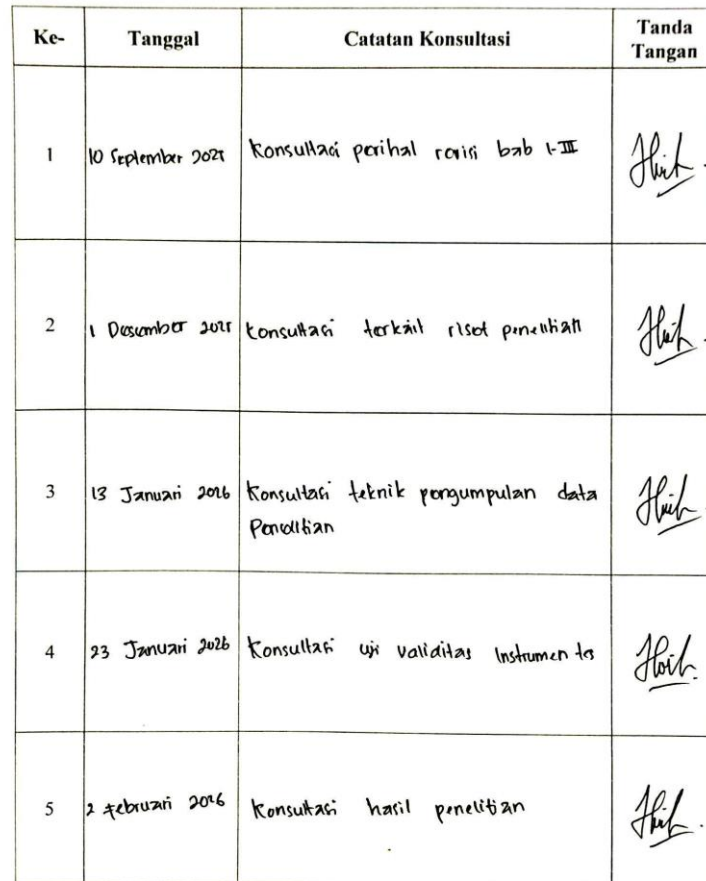 Ke- Tanggal Catatan Konsultasi Tanda
Tangan
1 10 September 2025 Konsultasi perihal revisi bab I-III
2 1 Desember 2025 Konsultasi terkait riset penelitian
3 13 Januari 2026 Konsultasi teknik pengumpulan data
Penelitian
4 23 Januari 2026 Konsultasi uji validitas Instrumen tes
5 2 Februari 2026 Konsultasi hasil penelitian